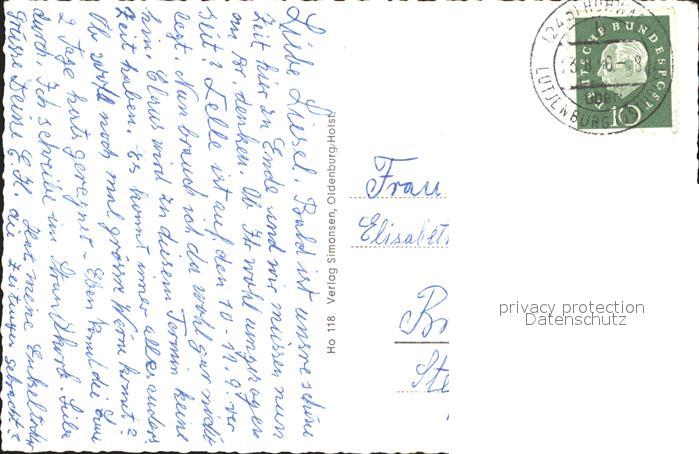 Liebe Liesel. Bald ist unsre schöne
Zeit hier zu Ende und wir müssen nun
an Br. denken. Ob Ihr wohl umgezogen
seit? Zelle ist auf den 10-11.9. ver
legt. Nun brauch ich da wohl gar nicht
hin. Claus wird zu diesem Termin keine
Zeit haben. Es kommt immer alles anders.
Ob wohl noch mal grosse Wärme kommt?
2 Tage hats geregnet - Eben kommt die Sonne
durch. Ich schreibe im Strandkorb. Liebe
Grüsse Deine E.H. Hat meine Enkeltochter
die Zeitung gebracht?
Ho 118 Verlag Simonsen, Oldenburg/Holst.
Frau
Elisabeth
Br
Ste
(24b)
LÜTJENBURG
DEUTSCHE BUNDESPOST
10
privacy protection
Datenschutz